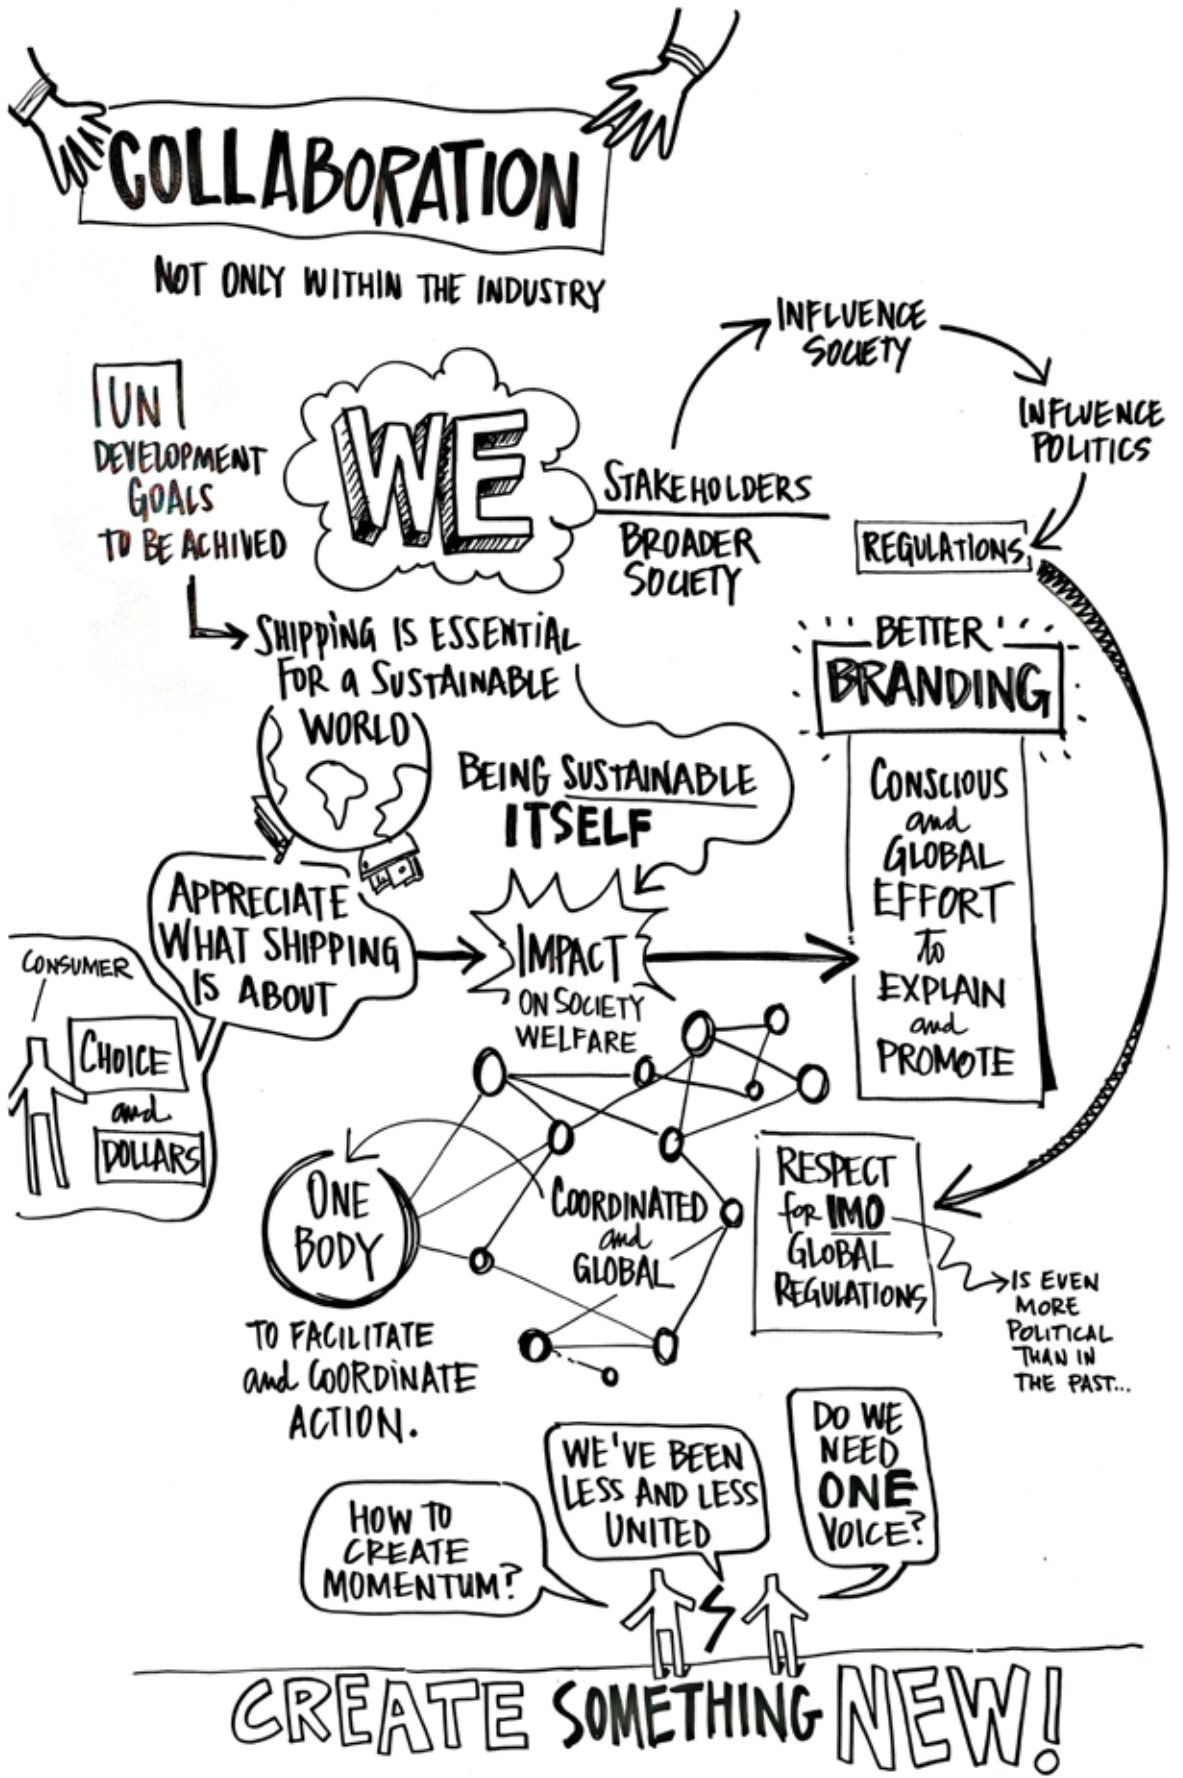 COLLABORATION
NOT ONLY WITHIN THE INDUSTRY
UN
DEVELOPMENT
GOALS
TO BE ACHIVED
WE
STAKEHOLDERS
BROADER
SOCIETY
INFLUENCE
SOCIETY
INFLUENCE
POLITICS
REGULATIONS
SHIPPING IS ESSENTIAL
FOR a SUSTAINABLE
WORLD
BEING SUSTAINABLE
ITSELF
BETTER
BRANDING
CONSCIOUS
and
GLOBAL
EFFORT
to
EXPLAIN
and
PROMOTE
APPRECIATE
WHAT SHIPPING
IS ABOUT
CONSUMER
CHOICE
and
DOLLARS
IMPACT
ON SOCIETY
WELFARE
ONE
BODY
COORDINATED
and
GLOBAL
TO FACILITATE
and COORDINATE
ACTION.
RESPECT
for IMO
GLOBAL
REGULATIONS
IS EVEN
MORE
POLITICAL
THAN IN
THE PAST...
HOW TO
CREATE
MOMENTUM?
WE'VE BEEN
LESS AND LESS
UNITED
DO WE
NEED
ONE
VOICE?
CREATE SOMETHING NEW!